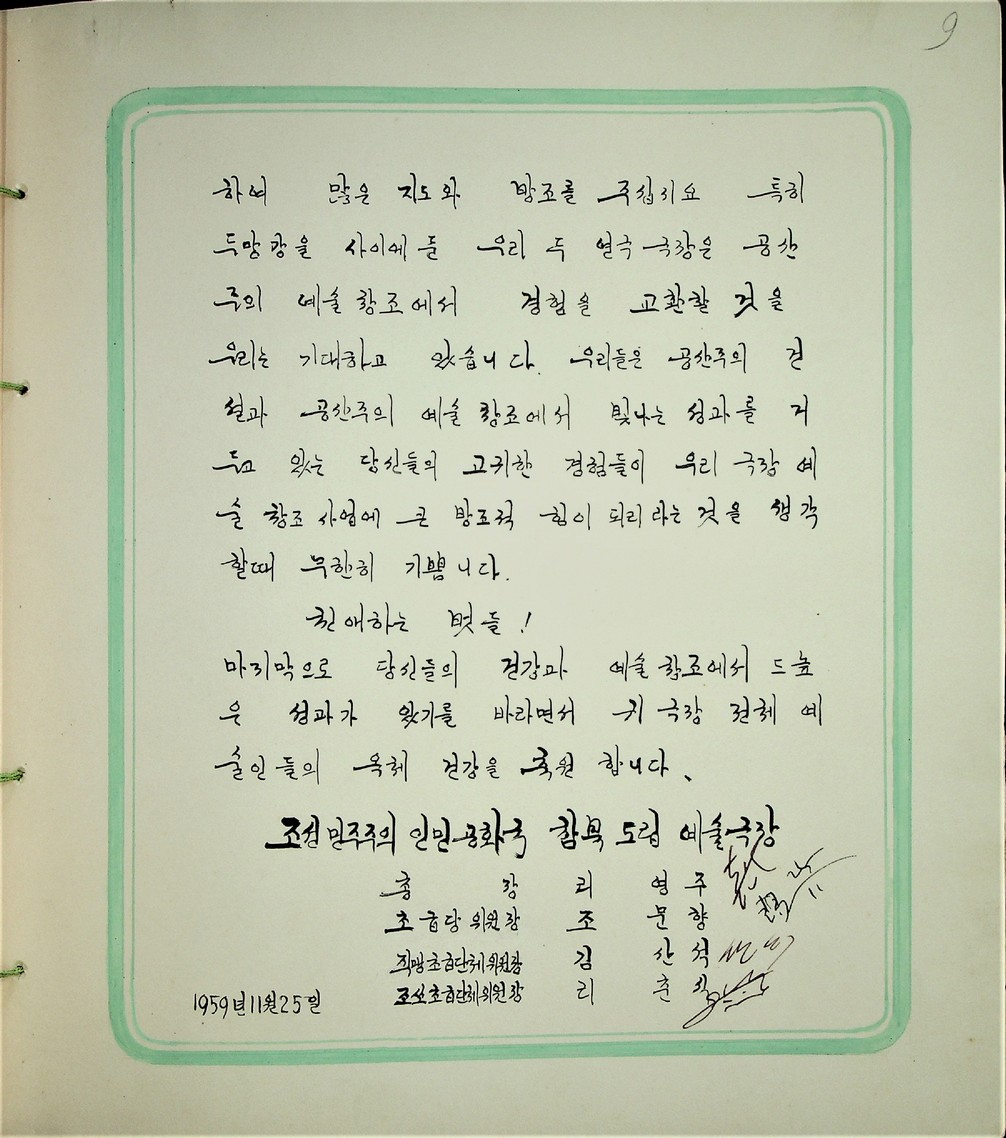 9
하여 많은 지도와 방조를 주십시요 특히
두망강을 사이에 둔 우리 두 연극 극장은 공산
주의 예술 창조에서 경험을 교환할 것을
우리는 기대하고 있습니다. 우리들은 공산주의 건
설과 공산주의 예술 창조에서 빛나는 성과를 거
두고 있는 당신들의 고귀한 경험들이 우리 극장 예
술 창조 사업에 큰 방조적 힘이 되리라는 것을 생각
할때 무한히 기쁨니다.
친애하는 벗들!
마지막으로 당신들의 건강과 예술 창조에서 드높
은 성과가 있기를 바라면서 귀 극장 전체 예
술인들의 옥체 건강을 축원 합니다.
조선 민주주의 인민 공화국 함북 도립 예술극장
총장 리영주
초급당 위원장 조문향
직맹초급단체위원장 김산석
초급단체위원장 리춘
1959년11월25일